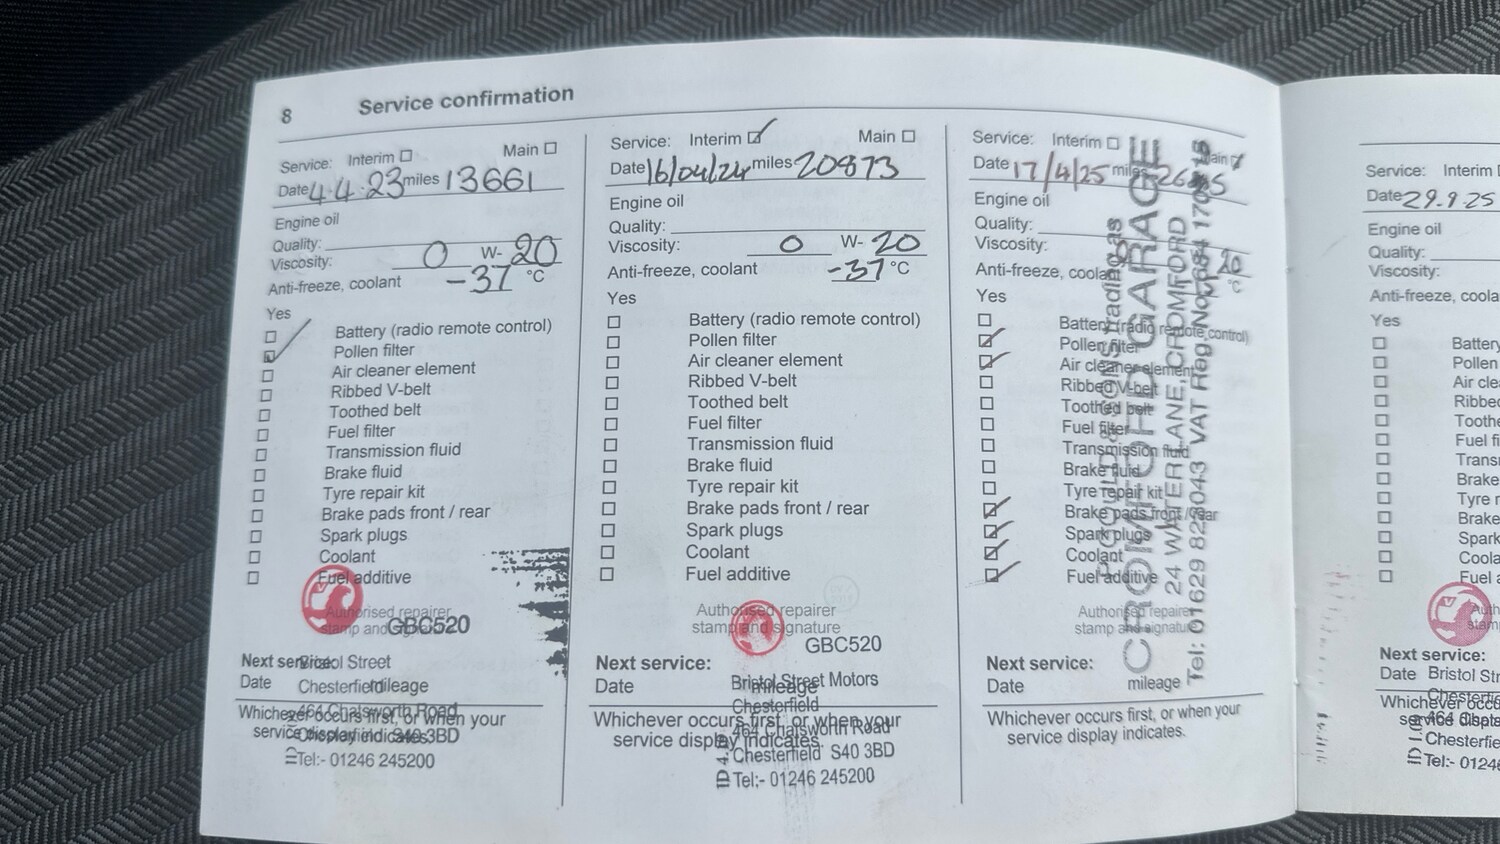 8 Service confirmation
Service: Interim Main
Date 4.4.23 miles 13661
Engine oil
Quality:
Viscosity: 0 W- 20
Anti-freeze, coolant -37 °C
Yes
Battery (radio remote control)
Pollen filter
Air cleaner element
Ribbed V-belt
Toothed belt
Fuel filter
Transmission fluid
Brake fluid
Tyre repair kit
Brake pads front / rear
Spark plugs
Coolant
Fuel additive
Authorised repairer
stamp and GBC520
Next service: Bristol Street
Date Chesterfield mileage
464 Chatsworth Road
Whichever occurs first, or when your
service display indicates.
Chesterfield S40 3BD
Tel:- 01246 245200
Service: Interim Main
Date 16/04/24 miles 20873
Engine oil
Quality:
Viscosity: 0 W- 20
Anti-freeze, coolant -37 °C
Yes
Battery (radio remote control)
Pollen filter
Air cleaner element
Ribbed V-belt
Toothed belt
Fuel filter
Transmission fluid
Brake fluid
Tyre repair kit
Brake pads front / rear
Spark plugs
Coolant
Fuel additive
Authorised repairer
stamp and signature
GBC520
Next service:
Date mileage
Bristol Street Motors
Chesterfield
Whichever occurs first, or when your
464 Chatsworth Road
service display indicates.
Chesterfield S40 3BD
Tel:- 01246 245200
Service: Interim Main
Date 17/4/25 miles
Engine oil
Quality:
Viscosity: 20
Anti-freeze, coolant °C
Yes
Battery (radio remote control)
Pollen filter
Air cleaner element
Ribbed V-belt
Toothed belt
Fuel filter
Transmission fluid
Brake fluid
Tyre repair kit
Brake pads front / rear
Spark plugs
Coolant
Fuel additive
Authorised repairer
stamp and signature
Next service:
Date mileage
Whichever occurs first, or when your
service display indicates.
trading as
CROMFORD GARAGE
24 WATER LANE, CROMFORD
Tel: 01629 823043 VAT Reg No:
Service: Interim
Date 29.9.25
Engine oil
Quality:
Viscosity:
Anti-freeze, coola
Yes
Battery
Pollen
Air cle
Ribbe
Tooth
Fuel fi
Trans
Brake
Tyre r
Brake
Spark
Coola
Fuel a
Auth
stam
Next service:
Date Bristol Str
Chesterfie
Whichever occu
464 Chats
service displa
Chesterfi
Tel:- 0124